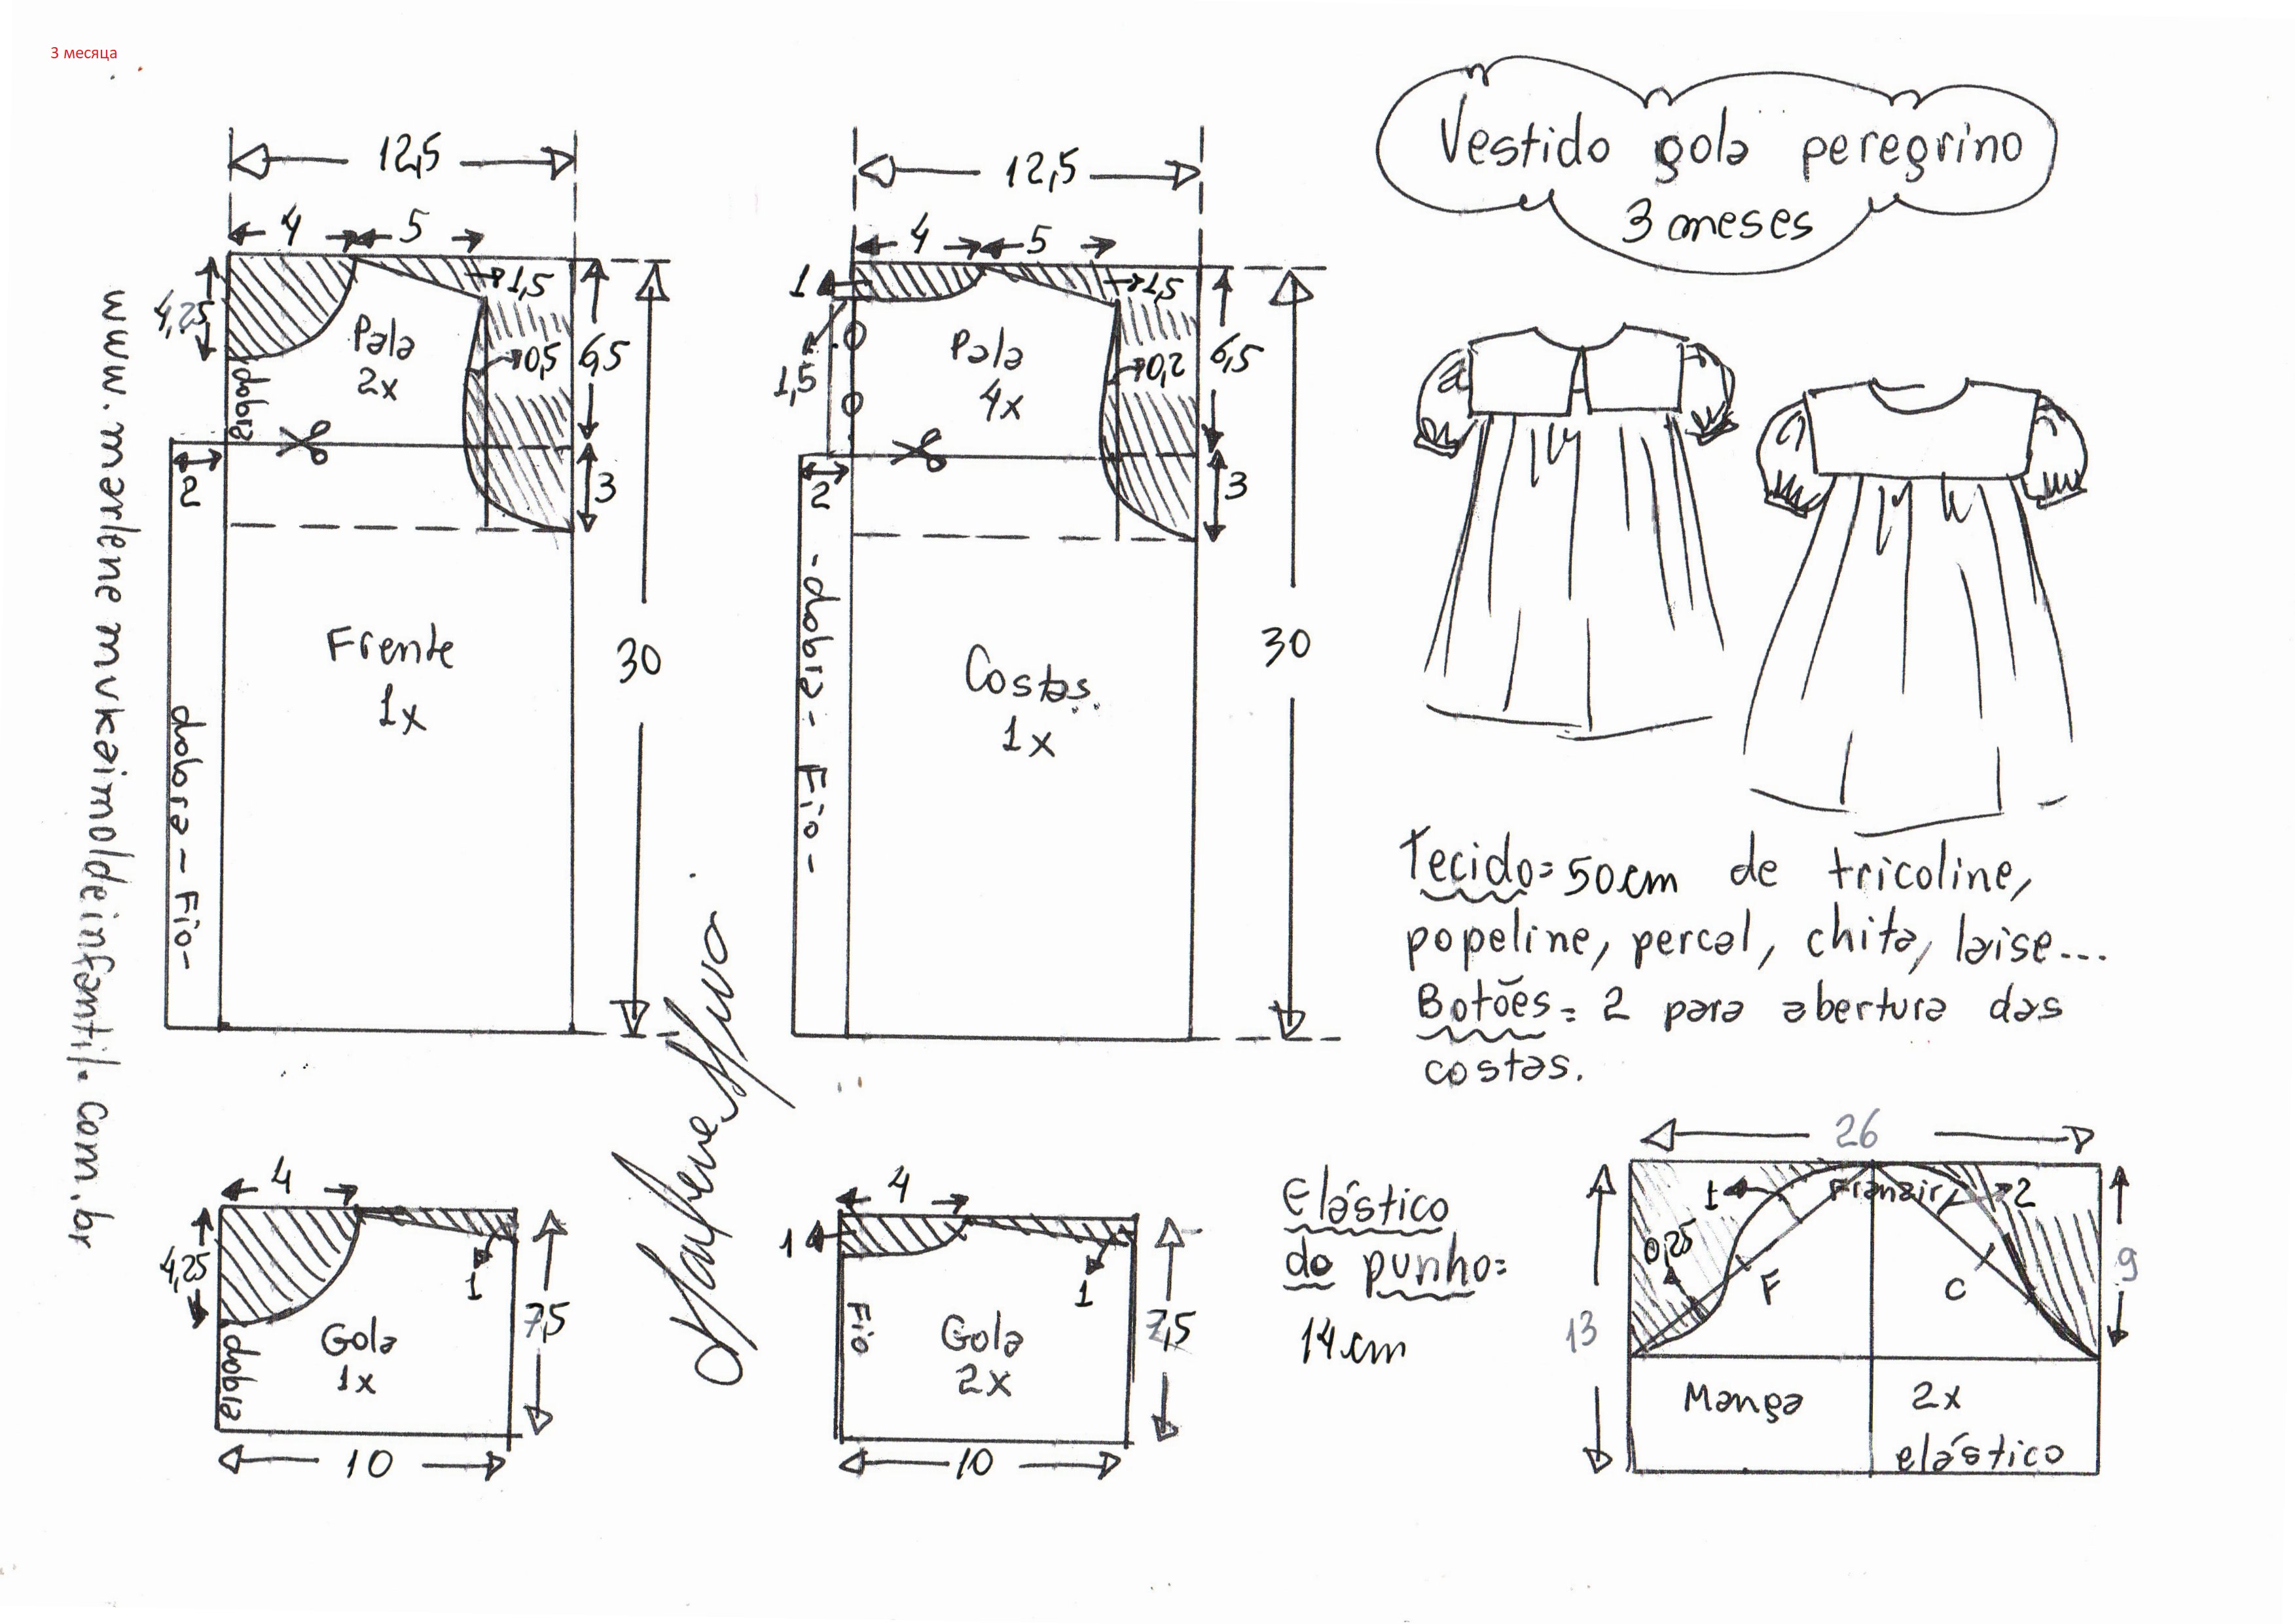 3 месяца
Vestido gola peregrino
3 meses
12,5
4 5
4,25
1,5
Pala
2x
0,5
6,5
dobra
2
3
Frente
1x
30
dobra - Fio -
12,5
4 5
1
1,5
Pala
4x
0,2
6,5
1,5
2
3
- dobra - Fio -
Costas
1x
30
www.marlenemukaimoldeinfantil.com.br
Tecido = 50cm de tricoline,
popeline, percal, chita, laise...
Botões = 2 para abertura das
costas.
4
4,25
1
Gola
1x
dobra
7,5
10
4
1
1
Fio
Gola
2x
7,5
10
Elástico
do punho =
14cm
26
1
Franzir
2
0,25
F
C
13
9
Manga
2x
elástico